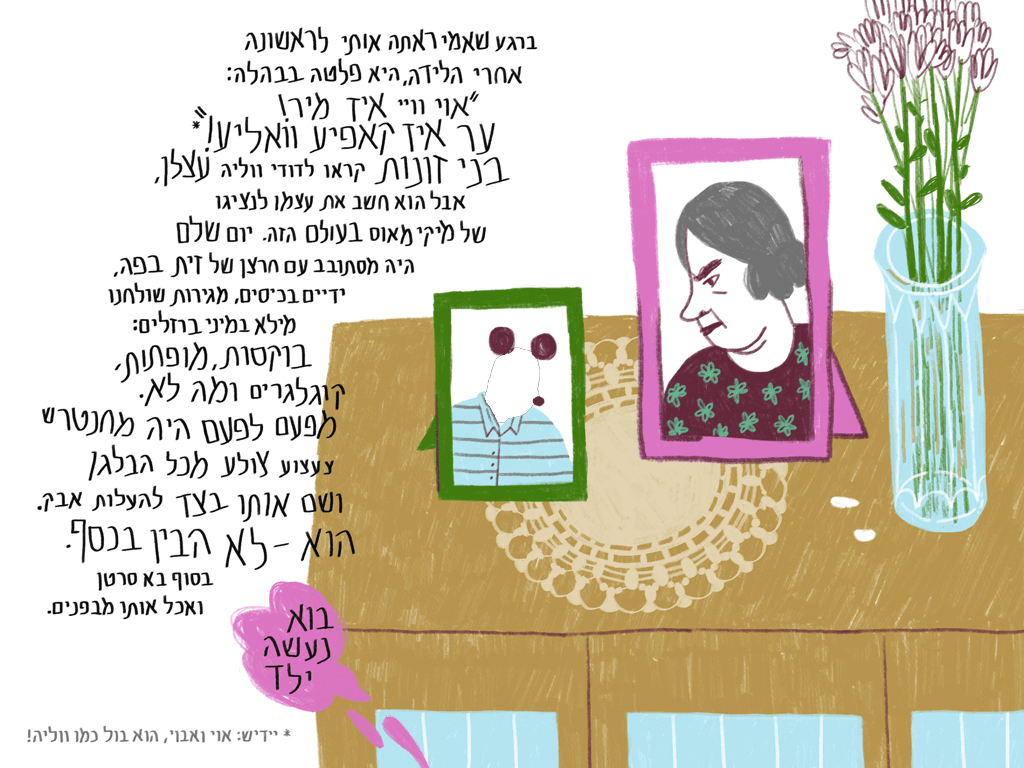 ברגע שאמי ראתה אותי לראשונה
אחרי הלידה, היא פלטה בבהלה:
"אוי וויי איז מיר!
ער איז קאפיע וואליע!"*
בני זונות קראו לדודי ווליה עצלן,
אבל הוא חשב את עצמו לנציגו
של מיקי מאוס בעולם הזה. יום שלם
היה מסתובב עם חרצן של זית בפה,
ידיים בכיסים, מגירות שולחנו
מילא במיני ברזלים:
בוקסות, מופתות,
קוגלגרים ומה לא.
מפעם לפעם היה מחנטרש
צעצוע צולע מכל הבלגן
ושם אותו בצד להעלות אבק.
הוא - לא הבין בכסף.
בסוף בא סרטן
ואכל אותו מבפנים.
בוא
נעשה
ילד
* יידיש: אוי ואבוי, הוא בול כמו ווליה!